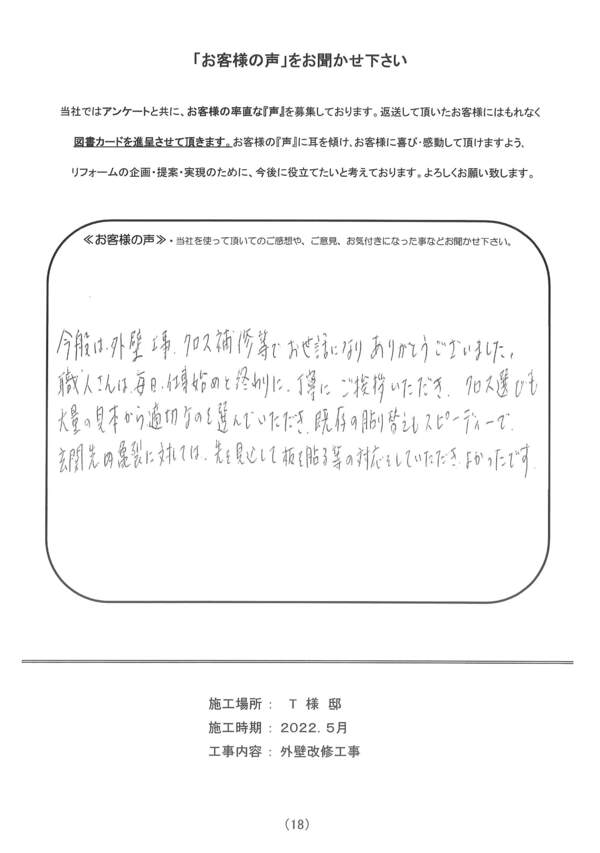 「お客様の声」をお聞かせ下さい
当社ではアンケートと共に、お客様の率直な『声』を募集しております。返送して頂いたお客様にはもれなく
図書カードを進呈させて頂きます。お客様の『声』に耳を傾け、お客様に喜び・感動して頂けますよう、
リフォームの企画・提案・実現のために、今後に役立てたいと考えております。よろしくお願い致します。
≪お客様の声≫・当社を使って頂いてのご感想や、ご意見、お気付きになった事などお聞かせ下さい。
今般は、外壁工事、クロス補修等でお世話になりありがとうございました。
職人さんは、毎日、仕事始めと終わりに、丁寧にご挨拶いただき、クロス選びも
大量の見本から適切なのを選んでいただき、既存の貼り替えもスピーディーで、
玄関先の亀裂に対しては、先を見込して板を貼る等の対応をしていただき、よかったです。
施工場所： T 様 邸
施工時期：2022.5月
工事内容：外壁改修工事
（18）